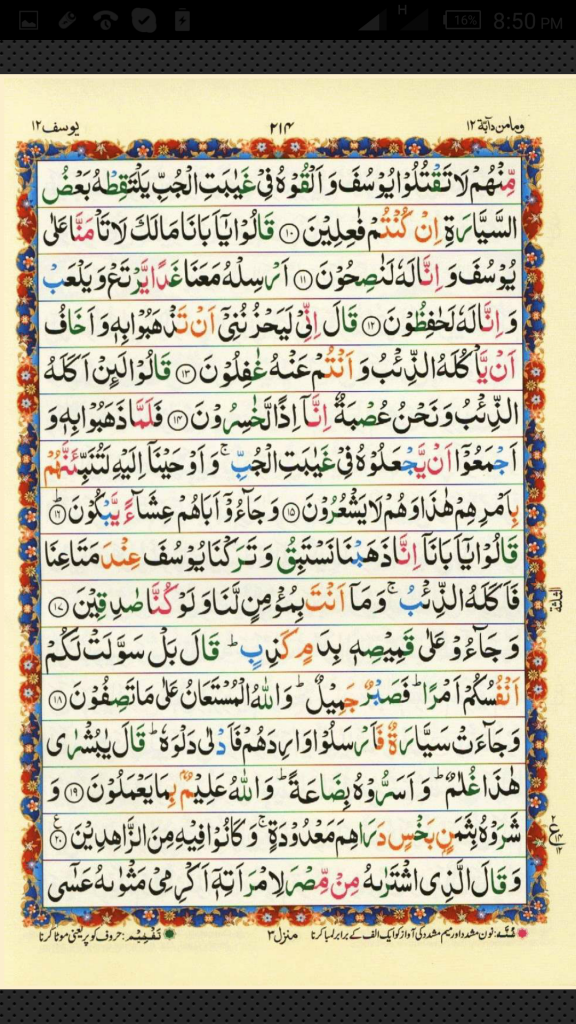 H 16% 8:50 PM
ومامن دآبة ١٢ ٢١٤ يوسف ١٢
مِّنْهُمْ لَا تَقْتُلُوْا يُوْسُفَ وَ اَلْقُوْهُ فِيْ غَيٰبَتِ الْجُبِّ يَلْتَقِطْهُ بَعْضُ
السَّيَّارَةِ اِنْ كُنْتُمْ فٰعِلِيْنَ ١٠ قَالُوْا يٰۤاَبَانَا مَا لَكَ لَا تَاْمَنَّا عَلٰى
يُوْسُفَ وَ اِنَّا لَهٗ لَنٰصِحُوْنَ ١١ اَرْسِلْهُ مَعَنَا غَدًا يَّرْتَعْ وَ يَلْعَبْ
وَ اِنَّا لَهٗ لَحٰفِظُوْنَ ١٢ قَالَ اِنِّيْ لَيَحْزُنُنِيْۤ اَنْ تَذْهَبُوْا بِهٖ وَ اَخَافُ
اَنْ يَّاْكُلَهُ الذِّئْبُ وَ اَنْتُمْ عَنْهُ غٰفِلُوْنَ ١٣ قَالُوْا لَىِٕنْ اَكَلَهُ
الذِّئْبُ وَ نَحْنُ عُصْبَةٌ اِنَّاۤ اِذًا لَّخٰسِرُوْنَ ١٤ فَلَمَّا ذَهَبُوْا بِهٖ وَ
اَجْمَعُوْۤا اَنْ يَّجْعَلُوْهُ فِيْ غَيٰبَتِ الْجُبِّ ۚ وَ اَوْحَيْنَاۤ اِلَيْهِ لَتُنَبِّئَنَّهُمْ
بِاَمْرِهِمْ هٰذَا وَ هُمْ لَا يَشْعُرُوْنَ ١٥ وَ جَآءُوْۤ اَبَاهُمْ عِشَآءً يَّبْكُوْنَ ١٦ ؕ
قَالُوْا يٰۤاَبَانَاۤ اِنَّا ذَهَبْنَا نَسْتَبِقُ وَ تَرَكْنَا يُوْسُفَ عِنْدَ مَتَاعِنَا
فَاَكَلَهُ الذِّئْبُ ۚ وَ مَاۤ اَنْتَ بِمُؤْمِنٍ لَّنَا وَ لَوْ كُنَّا صٰدِقِيْنَ ١٧
الثلثة
وَ جَآءُوْ عَلٰى قَمِيْصِهٖ بِدَمٍ كَذِبٍ ؕ قَالَ بَلْ سَوَّلَتْ لَكُمْ
اَنْفُسُكُمْ اَمْرًا ؕ فَصَبْرٌ جَمِيْلٌ ؕ وَ اللّٰهُ الْمُسْتَعَانُ عَلٰى مَا تَصِفُوْنَ ١٨
وَ جَآءَتْ سَيَّارَةٌ فَاَرْسَلُوْا وَارِدَهُمْ فَاَدْلٰى دَلْوَهٗ ؕ قَالَ يٰبُشْرٰى
هٰذَا غُلٰمٌ ؕ وَ اَسَرُّوْهُ بِضَاعَةً ؕ وَ اللّٰهُ عَلِيْمٌۢ بِمَا يَعْمَلُوْنَ ١٩ وَ
شَرَوْهُ بِثَمَنٍۭ بَخْسٍ دَرَاهِمَ مَعْدُوْدَةٍ ۚ وَ كَانُوْا فِيْهِ مِنَ الزَّاهِدِيْنَ ٢٠ ع
٢ ع ١٤ ١٢
وَ قَالَ الَّذِى اشْتَرٰىهُ مِنْ مِّصْرَ لِامْرَاَتِهٖۤ اَكْرِمِيْ مَثْوٰىهُ عَسٰۤى
غُنَّه: نون مشدد اور میم مشدد کی آواز کو ایک الف کے برابر لمبا کرنا منزل ٣ تَفْخِیْم: حروف کو پر یعنی موٹا کرنا